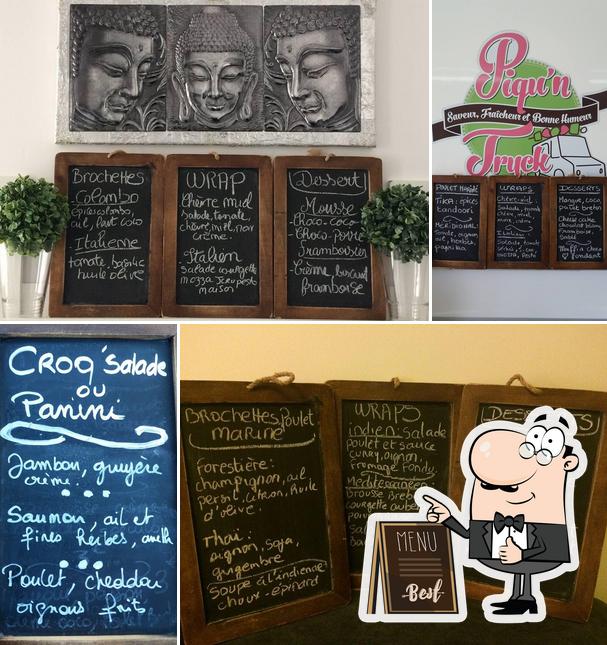 Brochettes
Colombo
épices colombo,
ail, lait coco
Italienne
tomate, basilic
huile olive
WRAP
Chèvre miel
Salade, tomate,
chèvre, miel, noix
crème.
Italien
Salade courgette
mozza
maison
Dessert
Mousse
-Choco-Coco
-Choco-Poire
Framboisier
-Crème
framboise
Piqu'n
Saveur, Fraîcheur et Bonne Humeur
Truck
POULET Mariné
TIKA: épices
tandoori
MERIDIONAL:
tomate, origan
ail, herbes,
paprika
WRAPS
Chèvre miel:
Salade, tomate
chèvre, miel,
Italien:
Salade, tomate
mozza, pesto
DESSERTS
Mangue, coco,
palet breton
Cheese cake
chocolat blanc
framboise,
Muffin choco
fondant
CROQ'Salade
ou
Panini
Jambon, gruyère
crème.
Saumon, ail et
fines herbes, aneth
Poulet, cheddar
oignons frits
Brochettes Poulet
MARINÉ
Forestière:
champignon, ail
persil, citron, huile
d'olive.
Thaï:
oignon, soja,
gingembre
Soupe à l'indienne
choux-épinard
WRAPS
indien: Salade
poulet et sauce
curry, oignon,
fromage fondu
Mediterraneen:
Brousse Brebis
courgette
MENU
Best